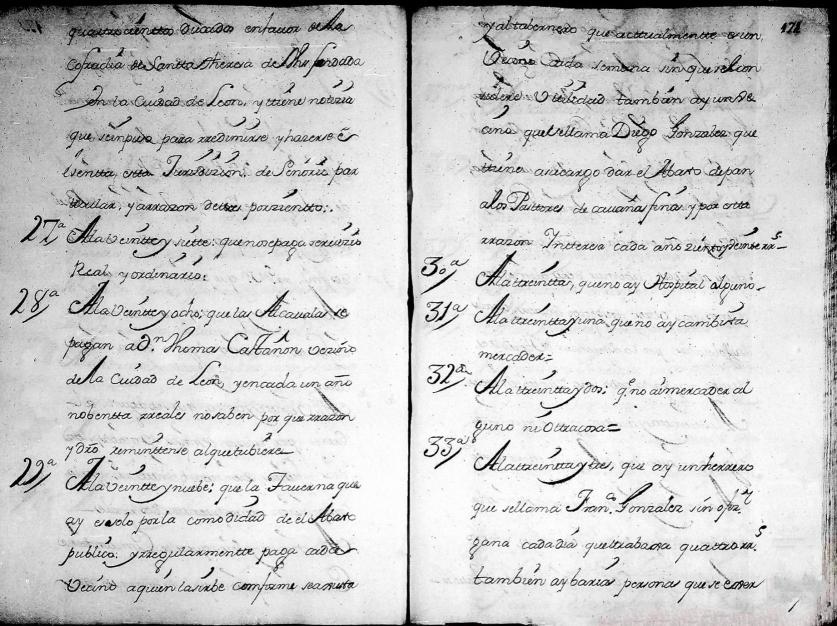 quattrocienttos Ducados en favor de la
Cofradia de Santta theresa de Jhs fundada
en la Ciudad de Leon, y ttiene nottizia
que se impuso para rredimirse y hazerse
essentta estta Jurisdizion, de Señorio par
ticular, y a rrazon de ttres por zientto:
27ª A la Veintte y siette: que no se paga servizio
Real y ordinario:
28ª A la Veintte y ocho; que las Alcavalas se
pagan a Dn Thomas Castañon vezino
de la Ciudad de Leon, y en cada un año
nobentta rreales no saben por que rrazon
y dro, remittense al que tubiere
29ª A la Veintte y nuebe; que la Taverna que
ay es solo por la comodidad de el Abasto
publico; y rregularmentte paga cada
Vecino a quien la sirbe comforme se ajusta
174
y al tabernero que acttualmentte es un
Vecino cada semana sin que se le con
sidere Uttilidad tambien ay un Ve
cino que se llama Diego Gonzalez que
ttiene a su cargo dar el Abasto de pan
a los Pasttores de cavaña fina y por estta
rrazon Intteresa cada año zientto y veintte rrs
30ª A la ttreintta, que no ay Hospital alguno
31ª A la ttreintta y una que no ay cambista
mercader=
32ª A la ttreintta y dos; q.e no ai mercader al
guno ni Ottra cosa=
33ª A la ttreintta y ttres, que ay un herrero
que se llama Fran.co Gonzalez sin ofiz.l
gana cada dia que ttrabaxa quattro rr.s
tambien ay barias personas que se exer